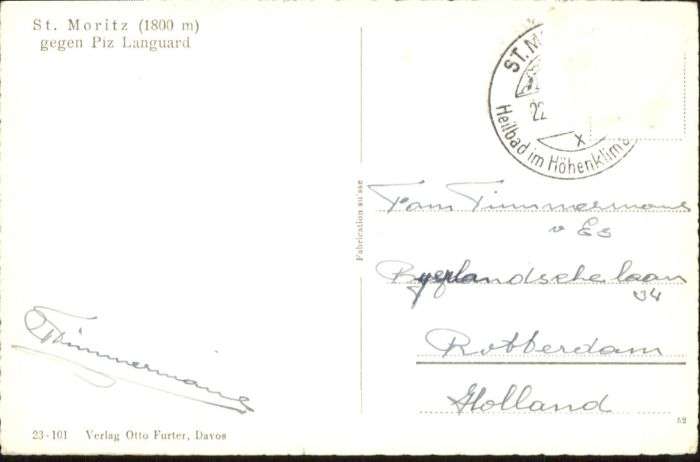 St. Moritz (1800 m)
gegen Piz Languard
ST. M
22
x
Heilbad im Höhenklima
Fabrication suisse
Fam Timmermans
v Es
laan
34
Rotterdam
Holland
Timmermans
23-101 Verlag Otto Furter, Davos
52